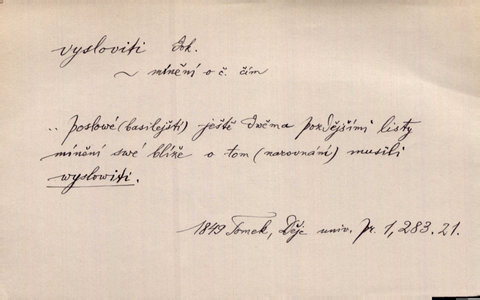 vysloviti dok.
~ mínění o č. čím
.. poslowé (basilejští) ještě dwěma pozdějšími listy
mínění swé blíže o tom (narovnání) musili
wyslowiti.
1849 Tomek, Děje univ. pr. 1, 283. 21.